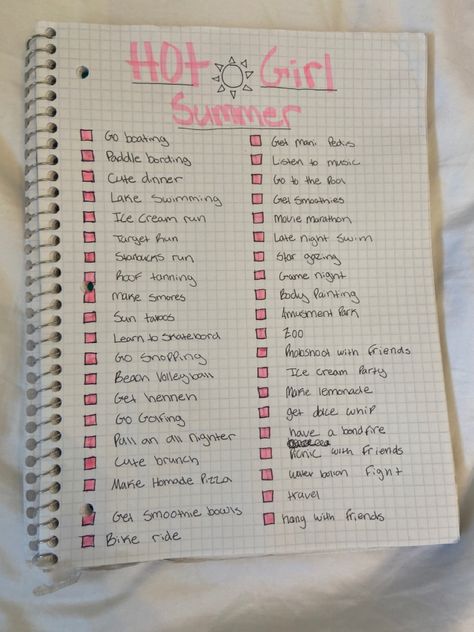 HOT Girl
Summer
Go boating
Paddle bording
Cute dinner
Lake Swimming
Ice Cream run
Target Run
Starbucks run
Roof tanning
Make smores
Sun tatoos
Learn to skatebord
Go Shopping
Beach Volleyball
Get hennen
Go Golfing
Pull an all nighter
Cute brunch
Make Homade Pizza
Get Smoothie bowls
Bike ride
Get mani Pedis
Listen to music
Go to the Pool
Get Smoothies
Movie marathon
Late night Swim
Star gazing
Game night
Body Painting
Amusment Park
Zoo
Photoshoot with friends
Ice cream Party
Make lemonade
get dole whip
have a bondfire
Picnic with friends
water bolion fight
travel
hang with friends